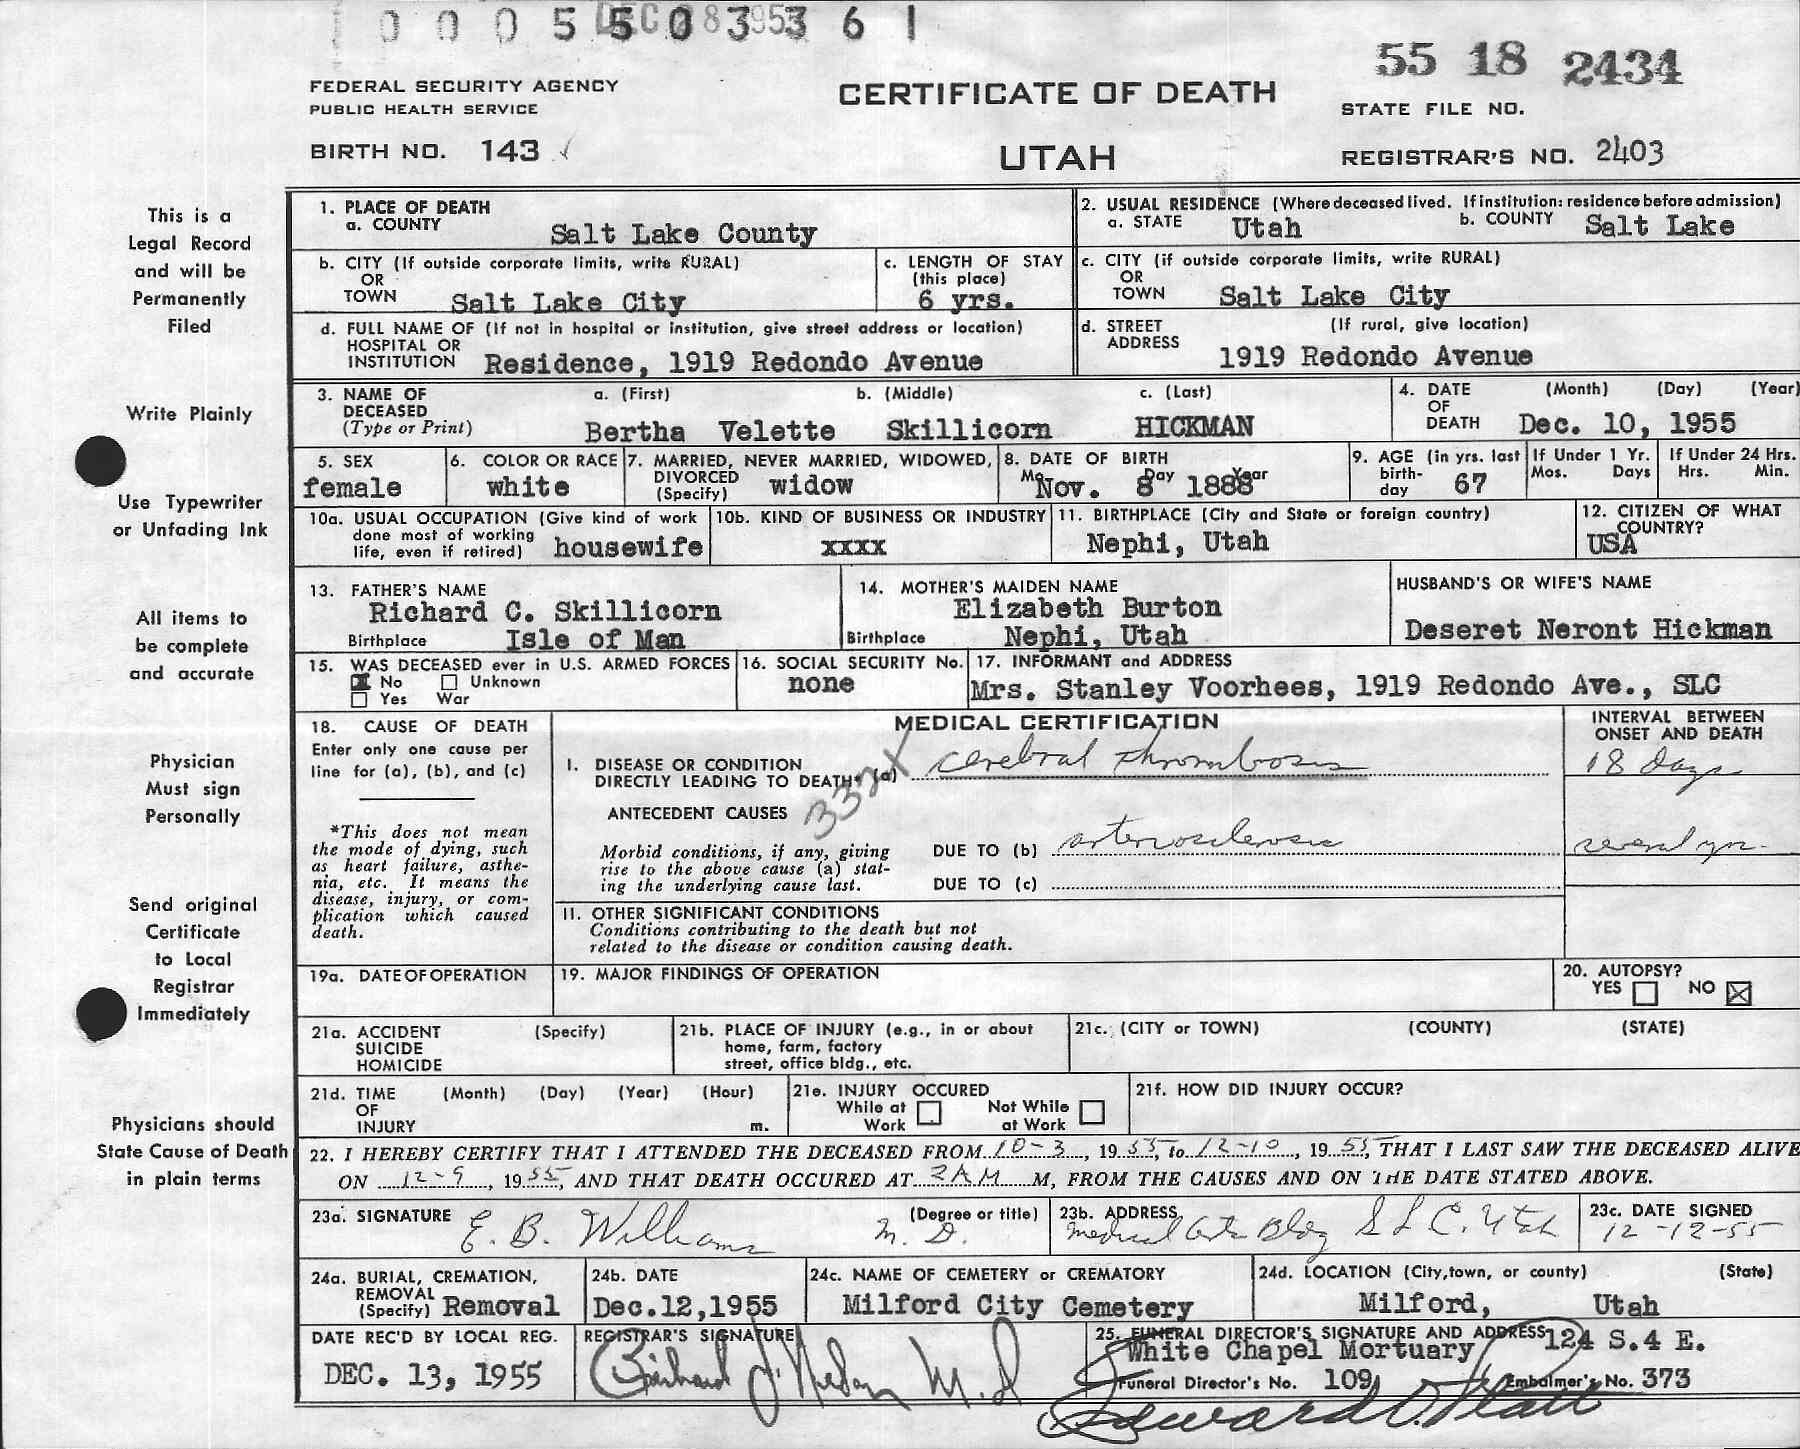 0005503361
DEC 28 1955
55 18 2434
FEDERAL SECURITY AGENCY
PUBLIC HEALTH SERVICE
CERTIFICATE OF DEATH
STATE FILE NO.
BIRTH NO. 143
UTAH
REGISTRAR'S NO. 2403
This is a
Legal Record
and will be
Permanently
Filed
Write Plainly
Use Typewriter
or Unfading Ink
All items to
be complete
and accurate
Physician
Must sign
Personally
Send original
Certificate
to Local
Registrar
Immediately
Physicians should
State Cause of Death
in plain terms
1. PLACE OF DEATH
a. COUNTY Salt Lake County
2. USUAL RESIDENCE (Where deceased lived. If institution: residence before admission)
a. STATE Utah b. COUNTY Salt Lake
b. CITY (If outside corporate limits, write RURAL)
OR
TOWN Salt Lake City
c. LENGTH OF STAY
(this place)
6 yrs.
c. CITY (if outside corporate limits, write RURAL)
OR
TOWN Salt Lake City
d. FULL NAME OF (If not in hospital or institution, give street address or location)
HOSPITAL OR
INSTITUTION Residence, 1919 Redondo Avenue
d. STREET (If rural, give location)
ADDRESS
1919 Redondo Avenue
3. NAME OF a. (First) b. (Middle) c. (Last)
DECEASED
(Type or Print) Bertha Velette Skillicorn HICKMAN
4. DATE (Month) (Day) (Year)
OF
DEATH Dec. 10, 1955
5. SEX
female
6. COLOR OR RACE
white
7. MARRIED, NEVER MARRIED, WIDOWED,
DIVORCED
(Specify) widow
8. DATE OF BIRTH
Mo Day Year
Nov. 8 1888
9. AGE (in yrs. last
birth-
day 67
If Under 1 Yr.
Mos. Days
If Under 24 Hrs.
Hrs. Min.
10a. USUAL OCCUPATION (Give kind of work
done most of working
life, even if retired) housewife
10b. KIND OF BUSINESS OR INDUSTRY
xxxx
11. BIRTHPLACE (City and State or foreign country)
Nephi, Utah
12. CITIZEN OF WHAT
COUNTRY?
USA
13. FATHER'S NAME
Richard C. Skillicorn
Birthplace Isle of Man
14. MOTHER'S MAIDEN NAME
Elizabeth Burton
Birthplace Nephi, Utah
HUSBAND'S OR WIFE'S NAME
Deseret Neront Hickman
15. WAS DECEASED ever in U.S. ARMED FORCES
No Unknown
Yes War
16. SOCIAL SECURITY No.
none
17. INFORMANT and ADDRESS
Mrs. Stanley Voorhees, 1919 Redondo Ave., SLC
18. CAUSE OF DEATH
Enter only one cause per
line for (a), (b), and (c)
*This does not mean
the mode of dying, such
as heart failure, asthe-
nia, etc. It means the
disease, injury, or com-
plication which caused
death.
MEDICAL CERTIFICATION
INTERVAL BETWEEN
ONSET AND DEATH
I. DISEASE OR CONDITION
DIRECTLY LEADING TO DEATH* (a) cerebral thrombosis 18 days
332X
ANTECEDENT CAUSES
Morbid conditions, if any, giving
rise to the above cause (a) stat-
ing the underlying cause last.
DUE TO (b) arteriosclerosis several yrs.
DUE TO (c)
II. OTHER SIGNIFICANT CONDITIONS
Conditions contributing to the death but not
related to the disease or condition causing death.
19a. DATE OF OPERATION
19. MAJOR FINDINGS OF OPERATION
20. AUTOPSY?
YES NO
21a. ACCIDENT (Specify)
SUICIDE
HOMICIDE
21b. PLACE OF INJURY (e.g., in or about
home, farm, factory
street, office bldg., etc.
21c. (CITY or TOWN) (COUNTY) (STATE)
21d. TIME (Month) (Day) (Year) (Hour)
OF
INJURY m.
21e. INJURY OCCURED
While at Not While
Work at Work
21f. HOW DID INJURY OCCUR?
22. I HEREBY CERTIFY THAT I ATTENDED THE DECEASED FROM 10-3, 1955, to 12-10, 1955, THAT I LAST SAW THE DECEASED ALIVE
ON 12-9, 1955, AND THAT DEATH OCCURED AT 2AM M, FROM THE CAUSES AND ON THE DATE STATED ABOVE.
23a. SIGNATURE (Degree or title)
E. B. Williams M. D.
23b. ADDRESS
Medical Arts Bldg S L C. Utah
23c. DATE SIGNED
12-12-55
24a. BURIAL, CREMATION,
REMOVAL
(Specify) Removal
24b. DATE
Dec.12,1955
24c. NAME OF CEMETERY or CREMATORY
Milford City Cemetery
24d. LOCATION (City,town, or county) (State)
Milford, Utah
DATE REC'D BY LOCAL REG.
DEC. 13, 1955
REGISTRAR'S SIGNATURE
M.D
25. FUNERAL DIRECTOR'S SIGNATURE AND ADDRESS 124 S.4 E.
White Chapel Mortuary
Funeral Director's No. 109 Embalmer's No. 373
Edward